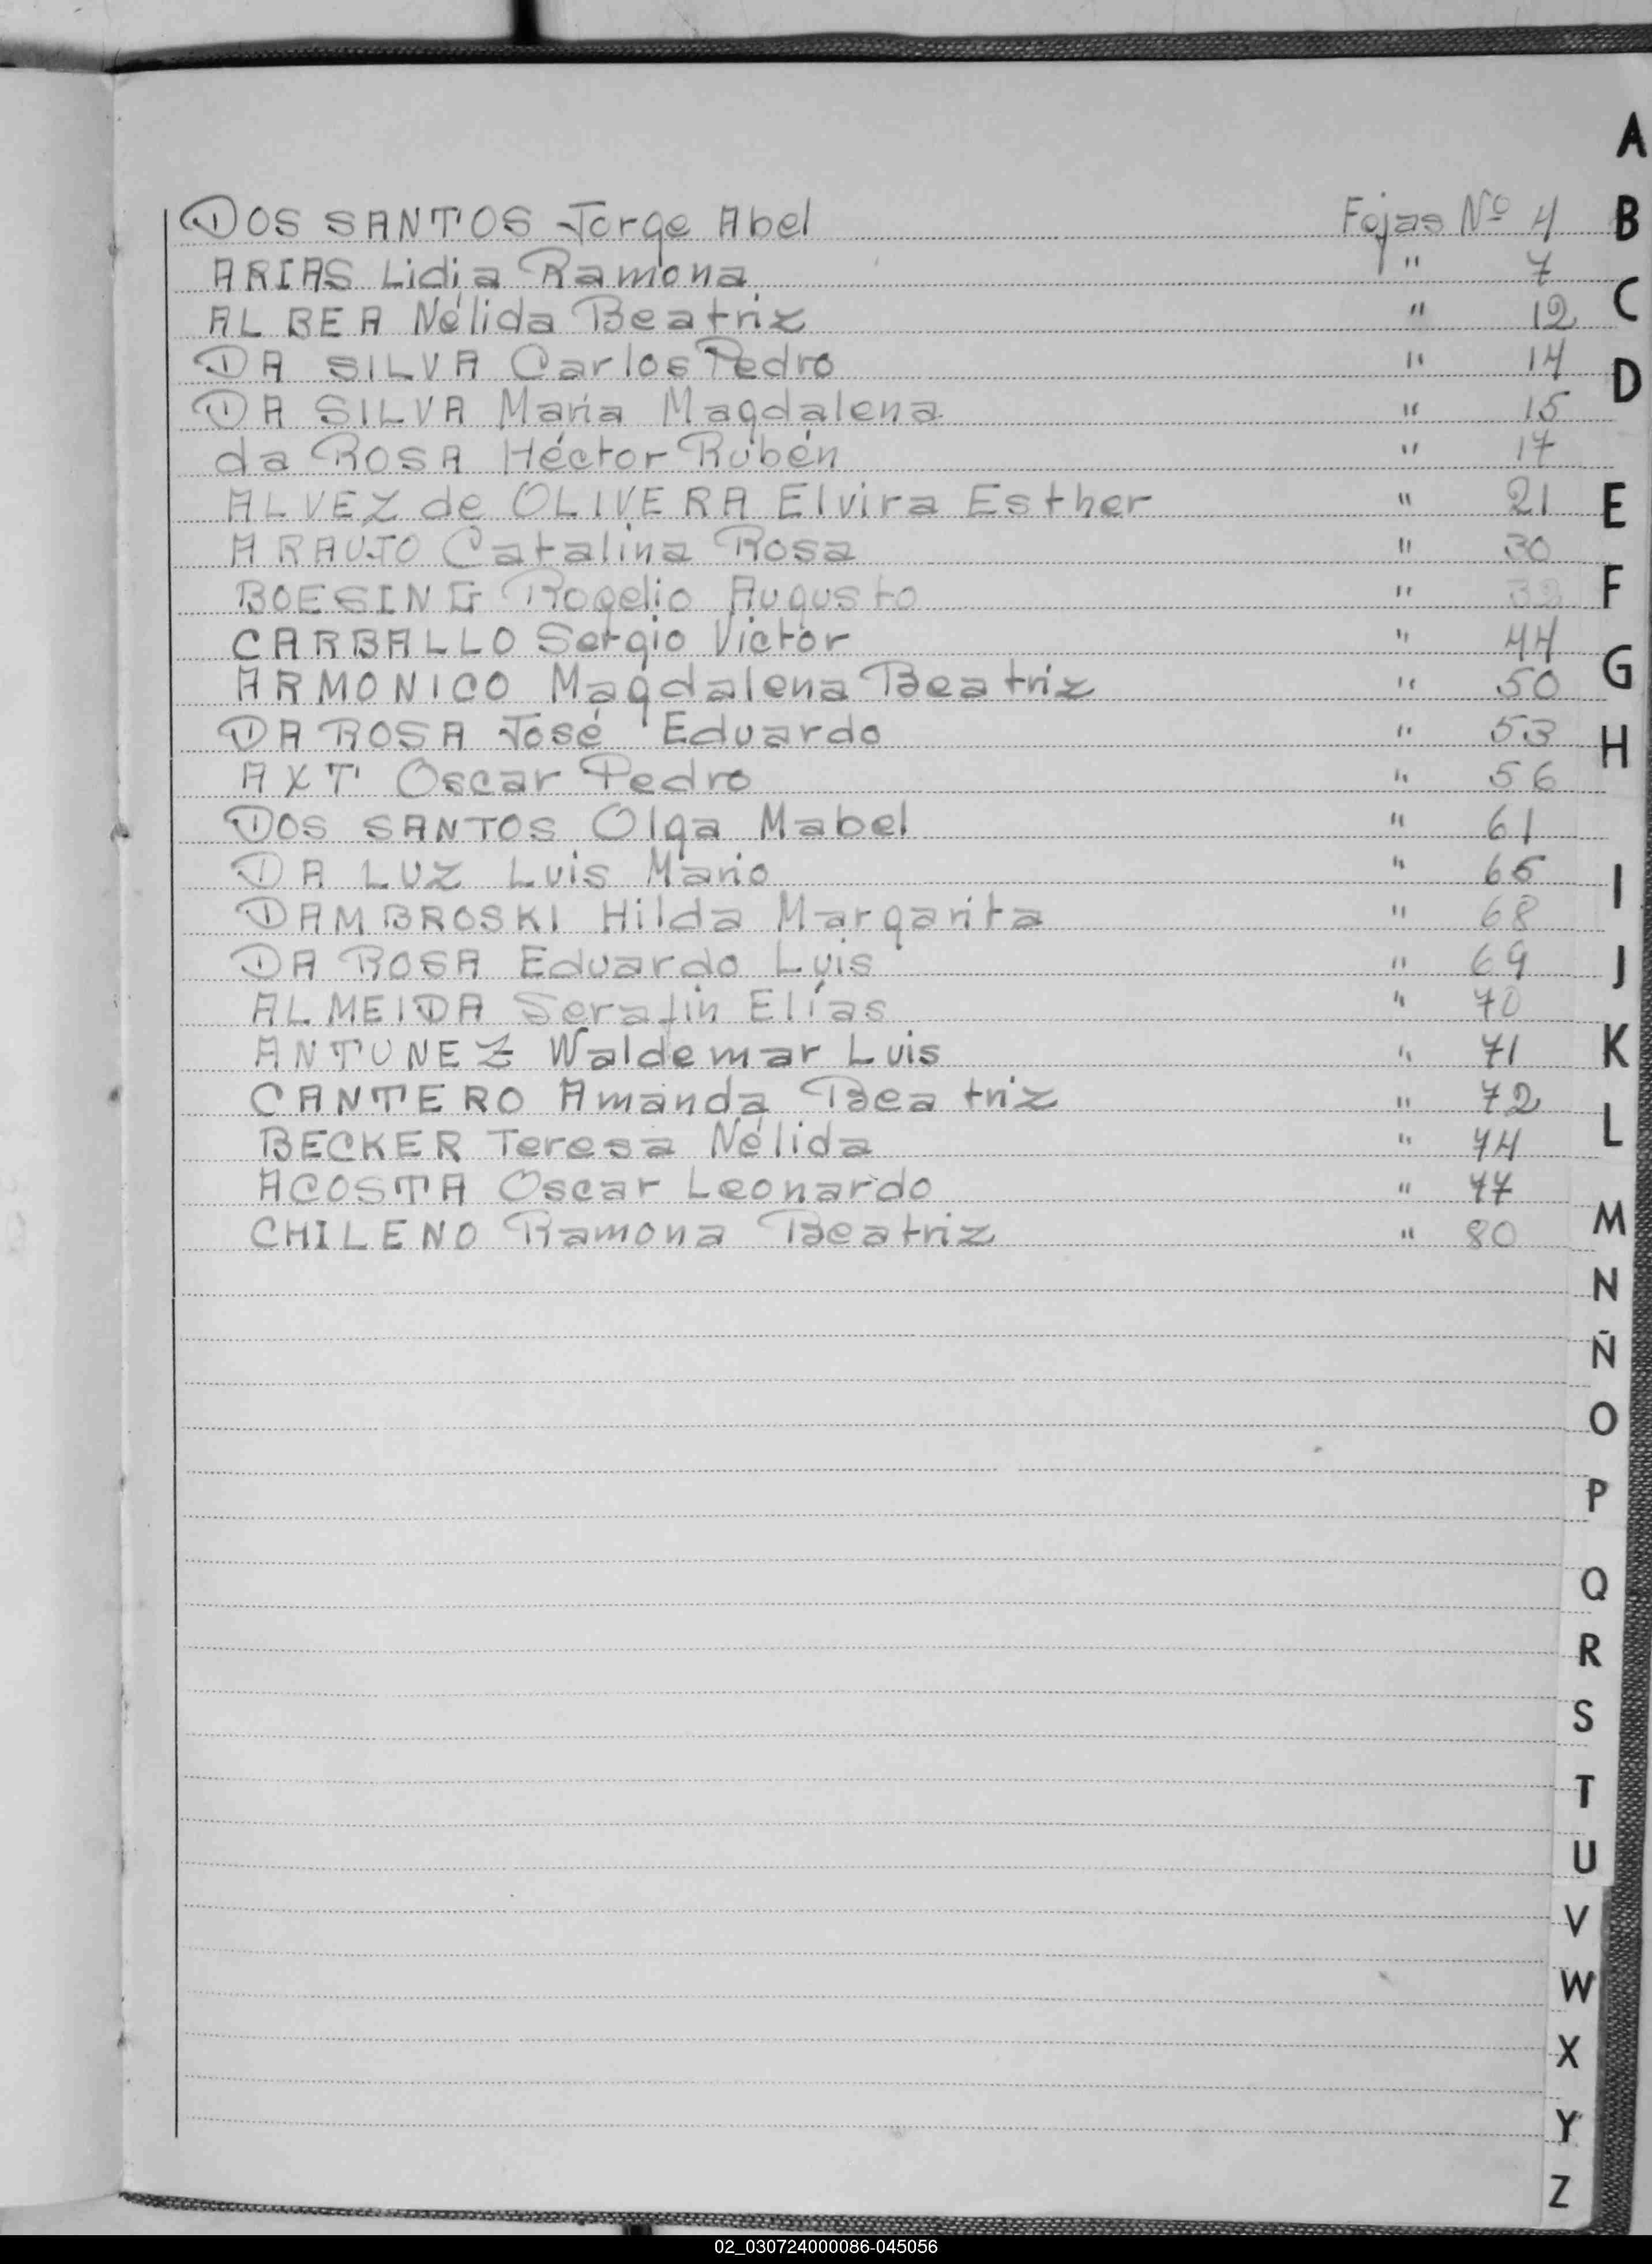 DOS SANTOS Jorge Abel Fojas Nº 4
ARIAS Lidia Ramona " 7
ALBEA Nélida Beatriz " 12
DA SILVA Carlos Pedro " 14
DA SILVA María Magdalena " 15
da ROSA Héctor Rubén " 17
ALVEZ de OLIVERA Elvira Esther " 21
ARAUJO Catalina Rosa " 30
BOESING Rogelio Augusto "
CARBALLO Sergio Victor " 44
ARMONICO Magdalena Beatriz " 50
DA ROSA José Eduardo " 53
AXT Oscar Pedro " 56
DOS SANTOS Olga Mabel " 61
DA LUZ Luis Mario " 65
DAMBROSKI Hilda Margarita " 68
DA ROSA Eduardo Luis " 69
ALMEIDA Serafin Elías " 70
ANTUNEZ Waldemar Luis " 71
CANTERO Amanda Beatriz " 72
BECKER Teresa Nélida " 74
ACOSTA Oscar Leonardo " 77
CHILENO Ramona Beatriz " 80
A
B
C
D
E
F
G
H
I
J
K
L
M
N
Ñ
O
P
Q
R
S
T
U
V
W
X
Y
Z
02_030724000086-045056